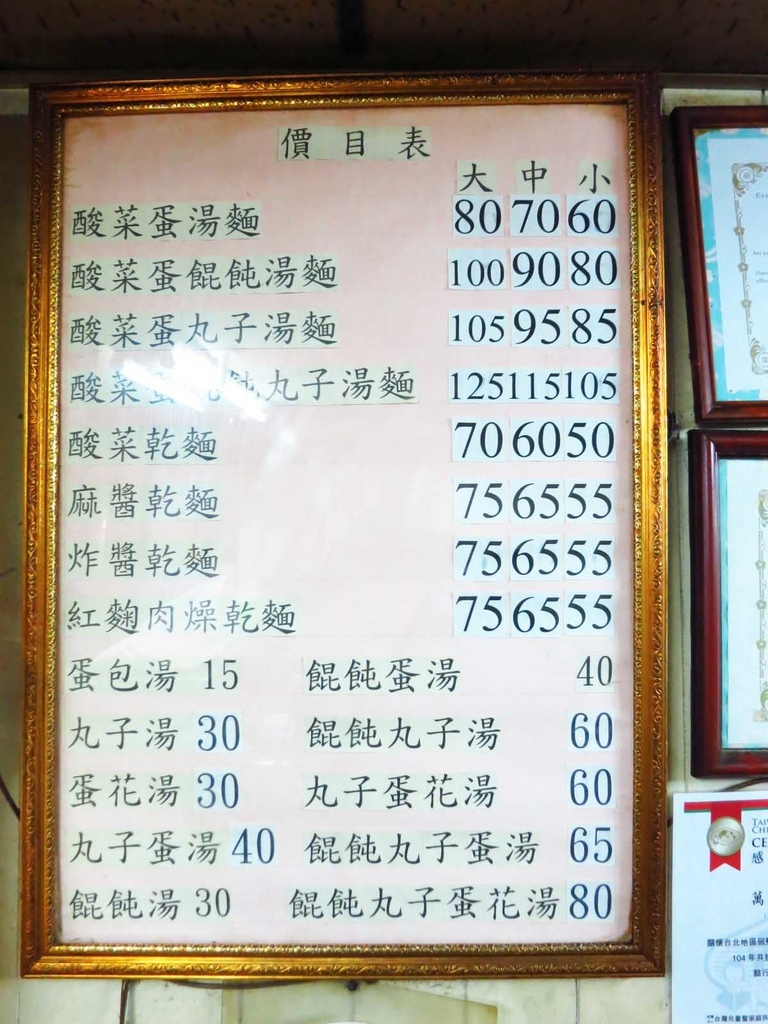 價目表
大 中 小
酸菜蛋湯麵 80 70 60
酸菜蛋餛飩湯麵 100 90 80
酸菜蛋丸子湯麵 105 95 85
酸菜蛋餛飩丸子湯麵 125 115 105
酸菜乾麵 70 60 50
麻醬乾麵 75 65 55
炸醬乾麵 75 65 55
紅麴肉燥乾麵 75 65 55
蛋包湯 15 餛飩蛋湯 40
丸子湯 30 餛飩丸子湯 60
蛋花湯 30 丸子蛋花湯 60
丸子蛋湯 40 餛飩丸子蛋湯 65
餛飩湯 30 餛飩丸子蛋花湯 80
感
萬
104年共